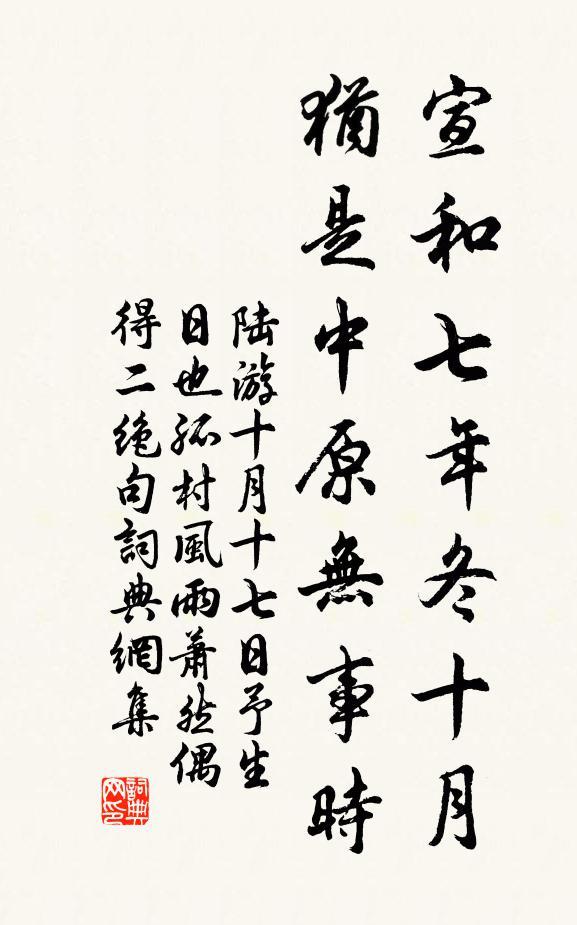 宣和七年冬十月
猶是中原無事時
陆游十月十七日予生
日也孤村風雨蕭然偶
得二絶句詞典網集
詞典网印